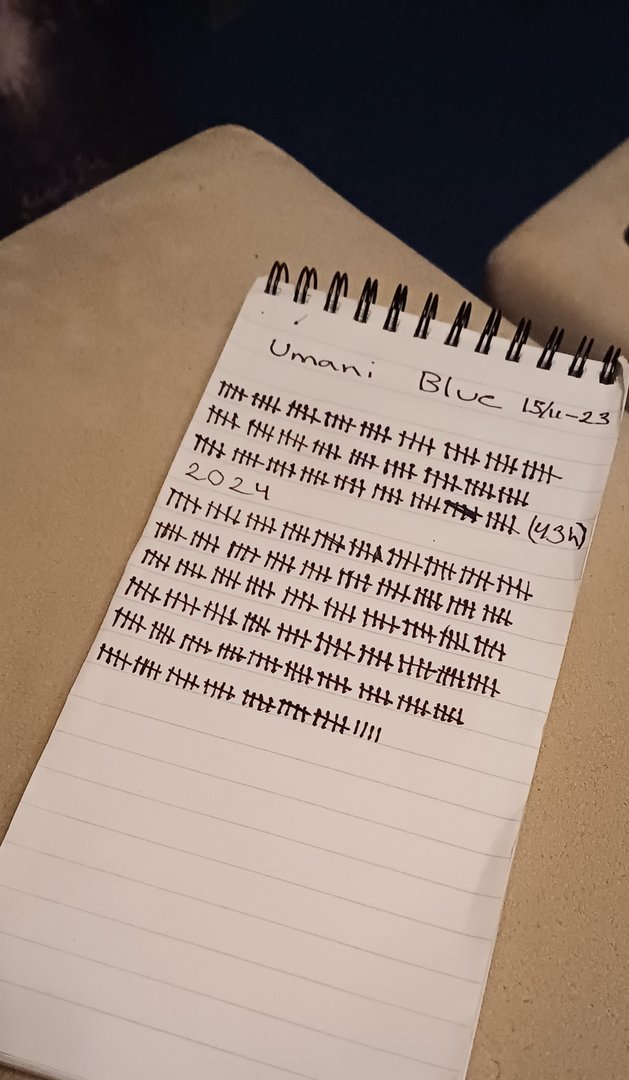 Umani Blue 15/11-23
(43h)
2024